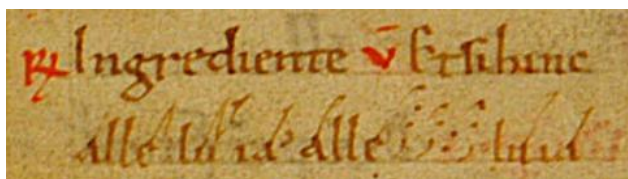 R Ingrediente v Et si hinc
alle lu ia alle lu ia